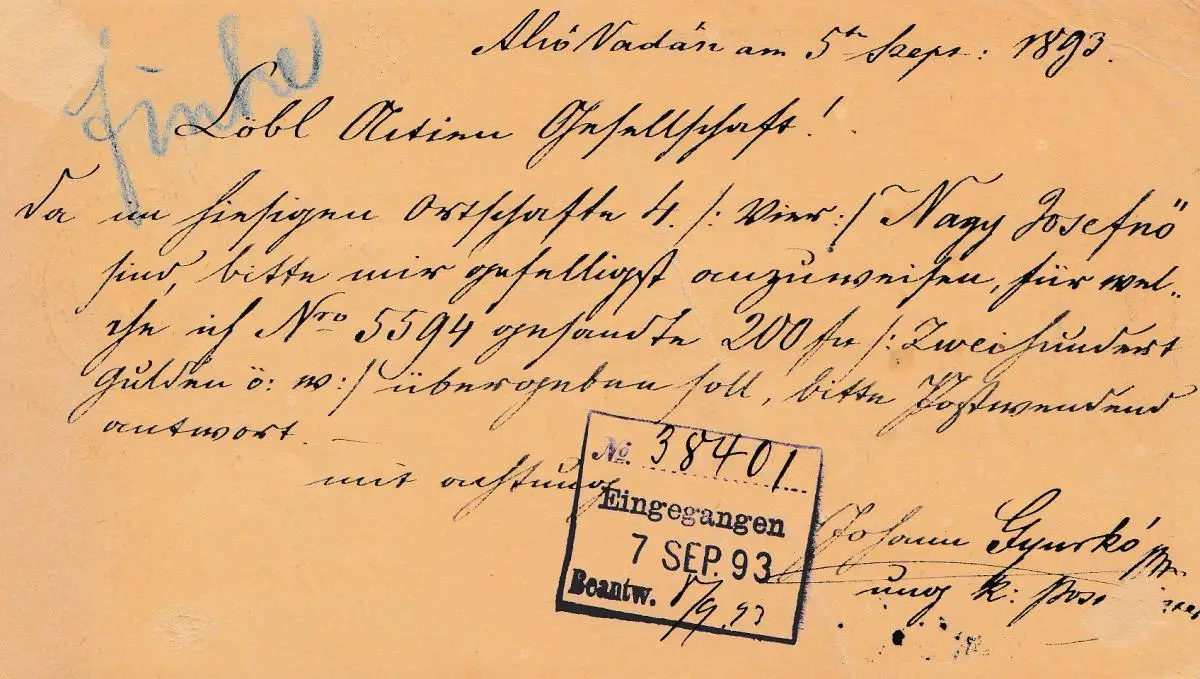 Alsó Vadász am 5ten Sept: 1893.
Löbl Actien Gesellschaft!
Da im hiesigen Ortschafte 4. /: Vier :/ Nagy Josefnö
sind, bitte mir gefelligst anzuweisen, für wel„
che ich Nro 5594 gesandte 200 fr /: Zweihundert
Gulden ö: w :/ übergeben soll, bitte Postwendend
antwort. —
mit achtung
Johann Gyurkó
ung k: Post
No. 38401
Eingegangen
7 SEP. 93
Beantw. 8/9. 93